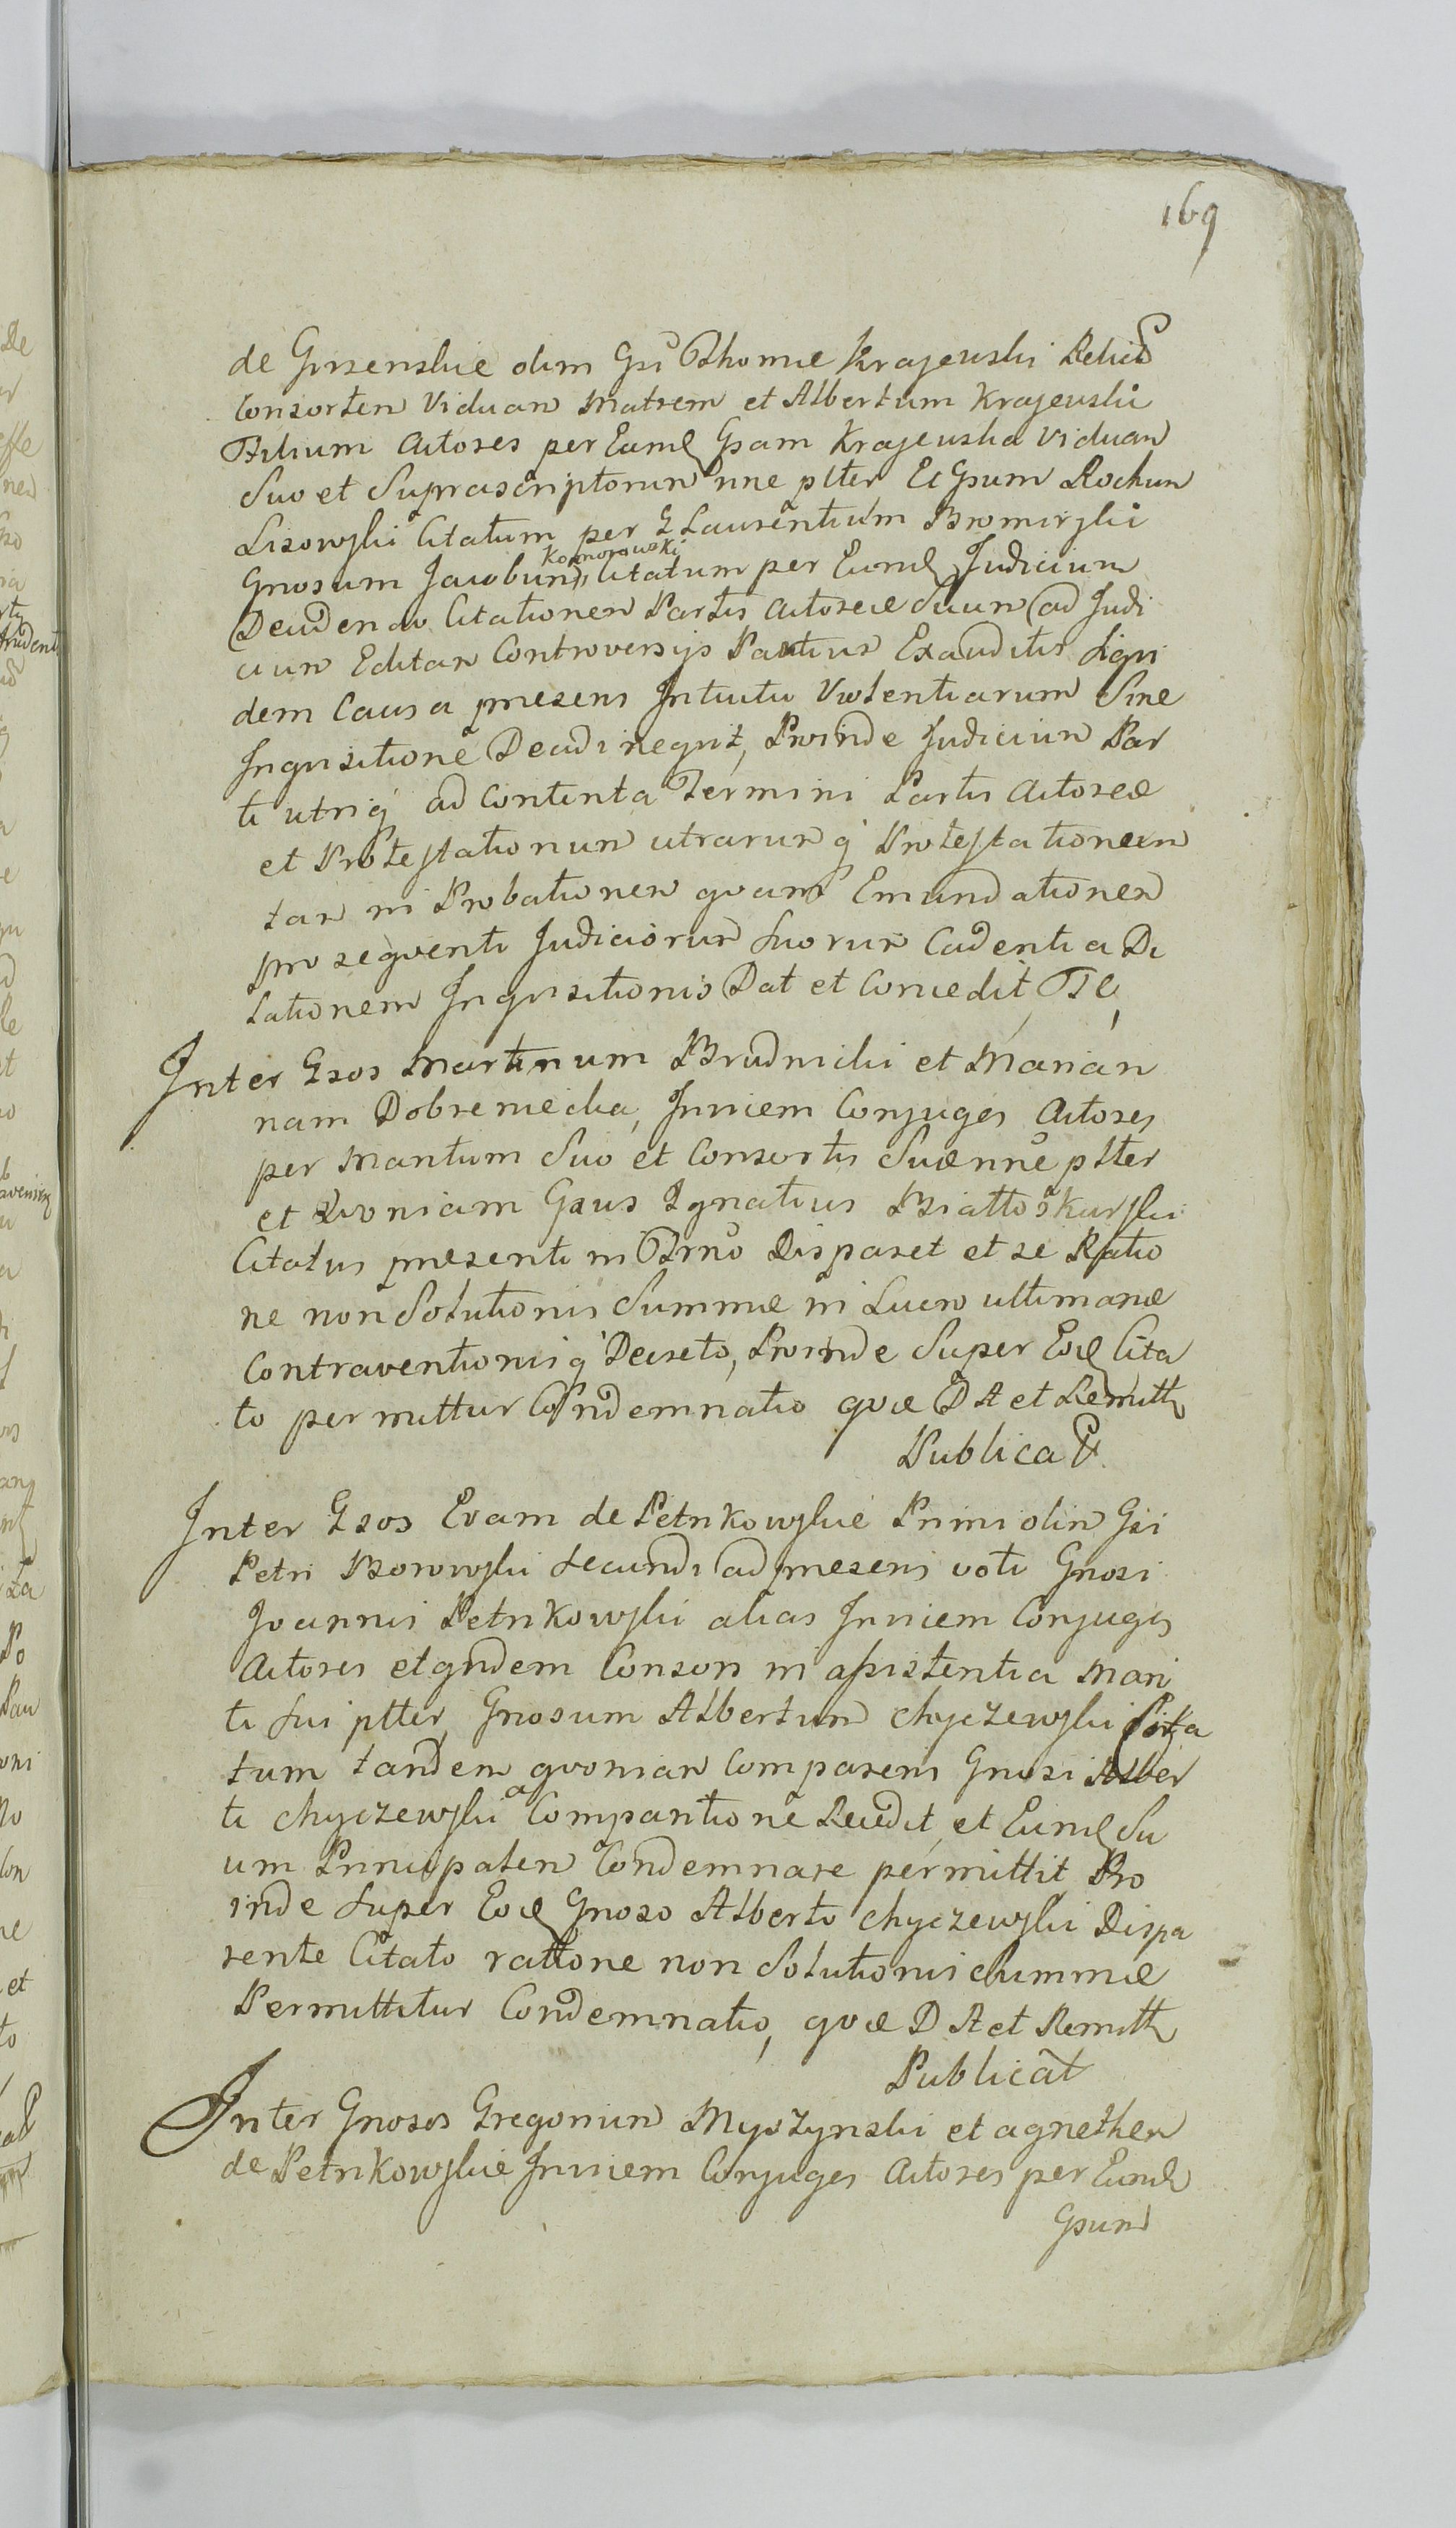 169
de Grzenskie olim Gsi Thomæ Krajewski Relict
Consortem Viduam Matrem et Albertum Krajewski
Filium Actores per Eamd Gsam Krajewska Viduam
Suo et Suprascriptorum nne pltter Et Gsum Rochum
Lisowski Citatum per G Laurentium Bromirski
Komorowski
Gnosum Jacobum Citatum per Eund Judicium
Decidendo Citationem Partis Actoreæ Suum ad Judi
cium Editam Controversijs Partium Exauditis Siqui
dem Causa præsens Intuitu Violentiarum Sine
Inquisitione Decidi nequit, Proinde Judicium Par
ti utriq ad Contenta Termini Partis Actoreæ
et Protestationum utrarumq Protestationem
tam in Probationem quam Emundationem
pro sequenti Judiciorum Suorum Cadentia Di
lationem Inquisitionis Dat et Concedit, TC
Inter Gsos Martinum Brudnicki et Marian
nam Dobrzeniecka, Invicem Conjuges Actores
per Maritum Suo et Consortis Suæ nne pltter
et Quoniam Gsus Ignatius Białłoskurski
Citatus præsenti in Trno Disparet et se Ratio
ne non Solutionis Summæ in Lucro ultimariæ
Contraventionisq Decreto, Proinde Super Eod Cita
to permittur Condemnatio quæ D A et Remitt
Publicat
Inter Gsos Evam de Petrikowskie Primi olim Gsi
Petri Borowski Secundi ad præsens voti Gnosi
Joannis Petrikowski alias Invicem Conjuges
Actores et quidem Consors in assistentia Mari
ti Sui pltter, Gnosum Albertum Chyczewski Cita
tum tandem quoniam Comparens Gnosi Alber
ti Chyczewski a Comparitione Recedit, et Eund Su
um Principalem Condemnare permittit Pro
inde Super Eod Gnoso Alberto Chyczewski Dispa
rente Citato rattone non Solutionis Summæ
Permittitur Condemnatio, quæ D A et Remitt
Publicat
Inter Gnosos Gregorium Myszynski et agnethem
de Petrikowskie Invicem Conjuges Actores per Eund
Gsum